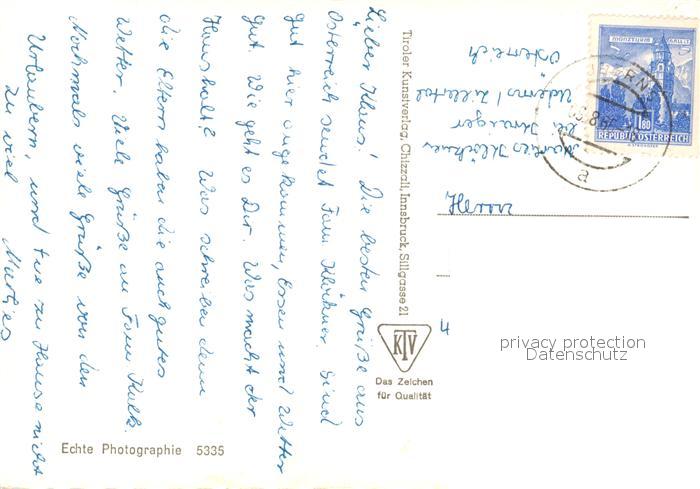 Lieber Klaus! Die besten Grüße aus
Österreich sendet Fam Klückner. Sind
gut hier angekommen, Essen und Wetter
gut. Wie geht es Dir. Was macht der
Haushalt? Was schreiben denn
die Eltern haben die auch gutes
Wetter. Viele Grüße an Fam
Nochmals viele Grüße von den
Urlaubern, und tue zu Hause nicht
zu viel Marlies
Echte Photographie 5335
Tiroler Kunstverlag, Chizzali, Innsbruck, Sillgasse 21
KTV
Das Zeichen
für Qualität
Marlies Klückner
bei
Uderns / Zillertal
Österreich
Herrn
4
privacy protection
Datenschutz
MÜNZTURM HALL I.T.
1.80
REPUBLIK ÖSTERREICH
a